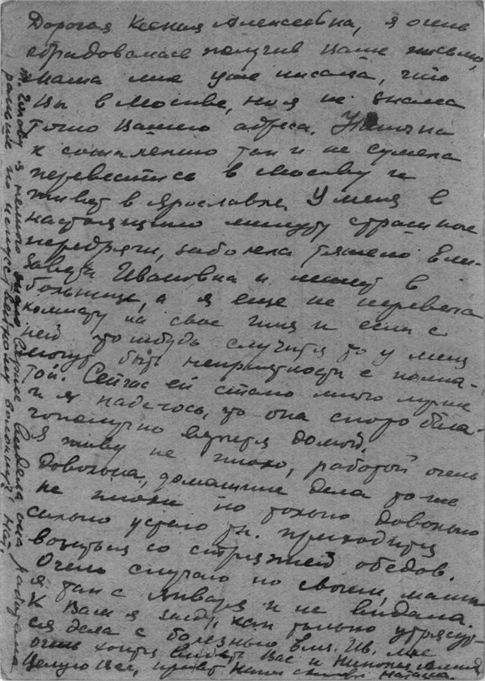 Дорогая Ксения Алексеевна, я очень
обрадовалась получив Ваше письмо,
мама мне уже писала, что
Вы в Москве, но я не знала
точно Вашего адреса.
к сожалению так и не сумела
перевестись в Москву и
живет в Ярославле. У меня в
настоящую минуту страшные
передряги, заболела тяжело Ели-
завета Ивановна и лежит в
больнице, а я еще не перевела
комнату на свое имя и если с
ней что нибудь случится то у меня
могут быть неприятности с комна-
той. Сейчас ей стало много лучше
и я надеюсь, что она скоро бла-
гополучно вернется домой.
Я живу не плохо, работой очень
довольна, домашние дела тоже
не плохи но только довольно
сильно устаю т.к. приходится
возиться со стряпней обедов.
Очень скучаю по своим, мамы
я так с января и не видала.
К Вам я зайду, как только утрясут-
ся дела с болезнью Елиз. Ив. Мне
очень хочется видеть Вас и
Целую Вас, привет Наташа.
раньше по искусственному волокну